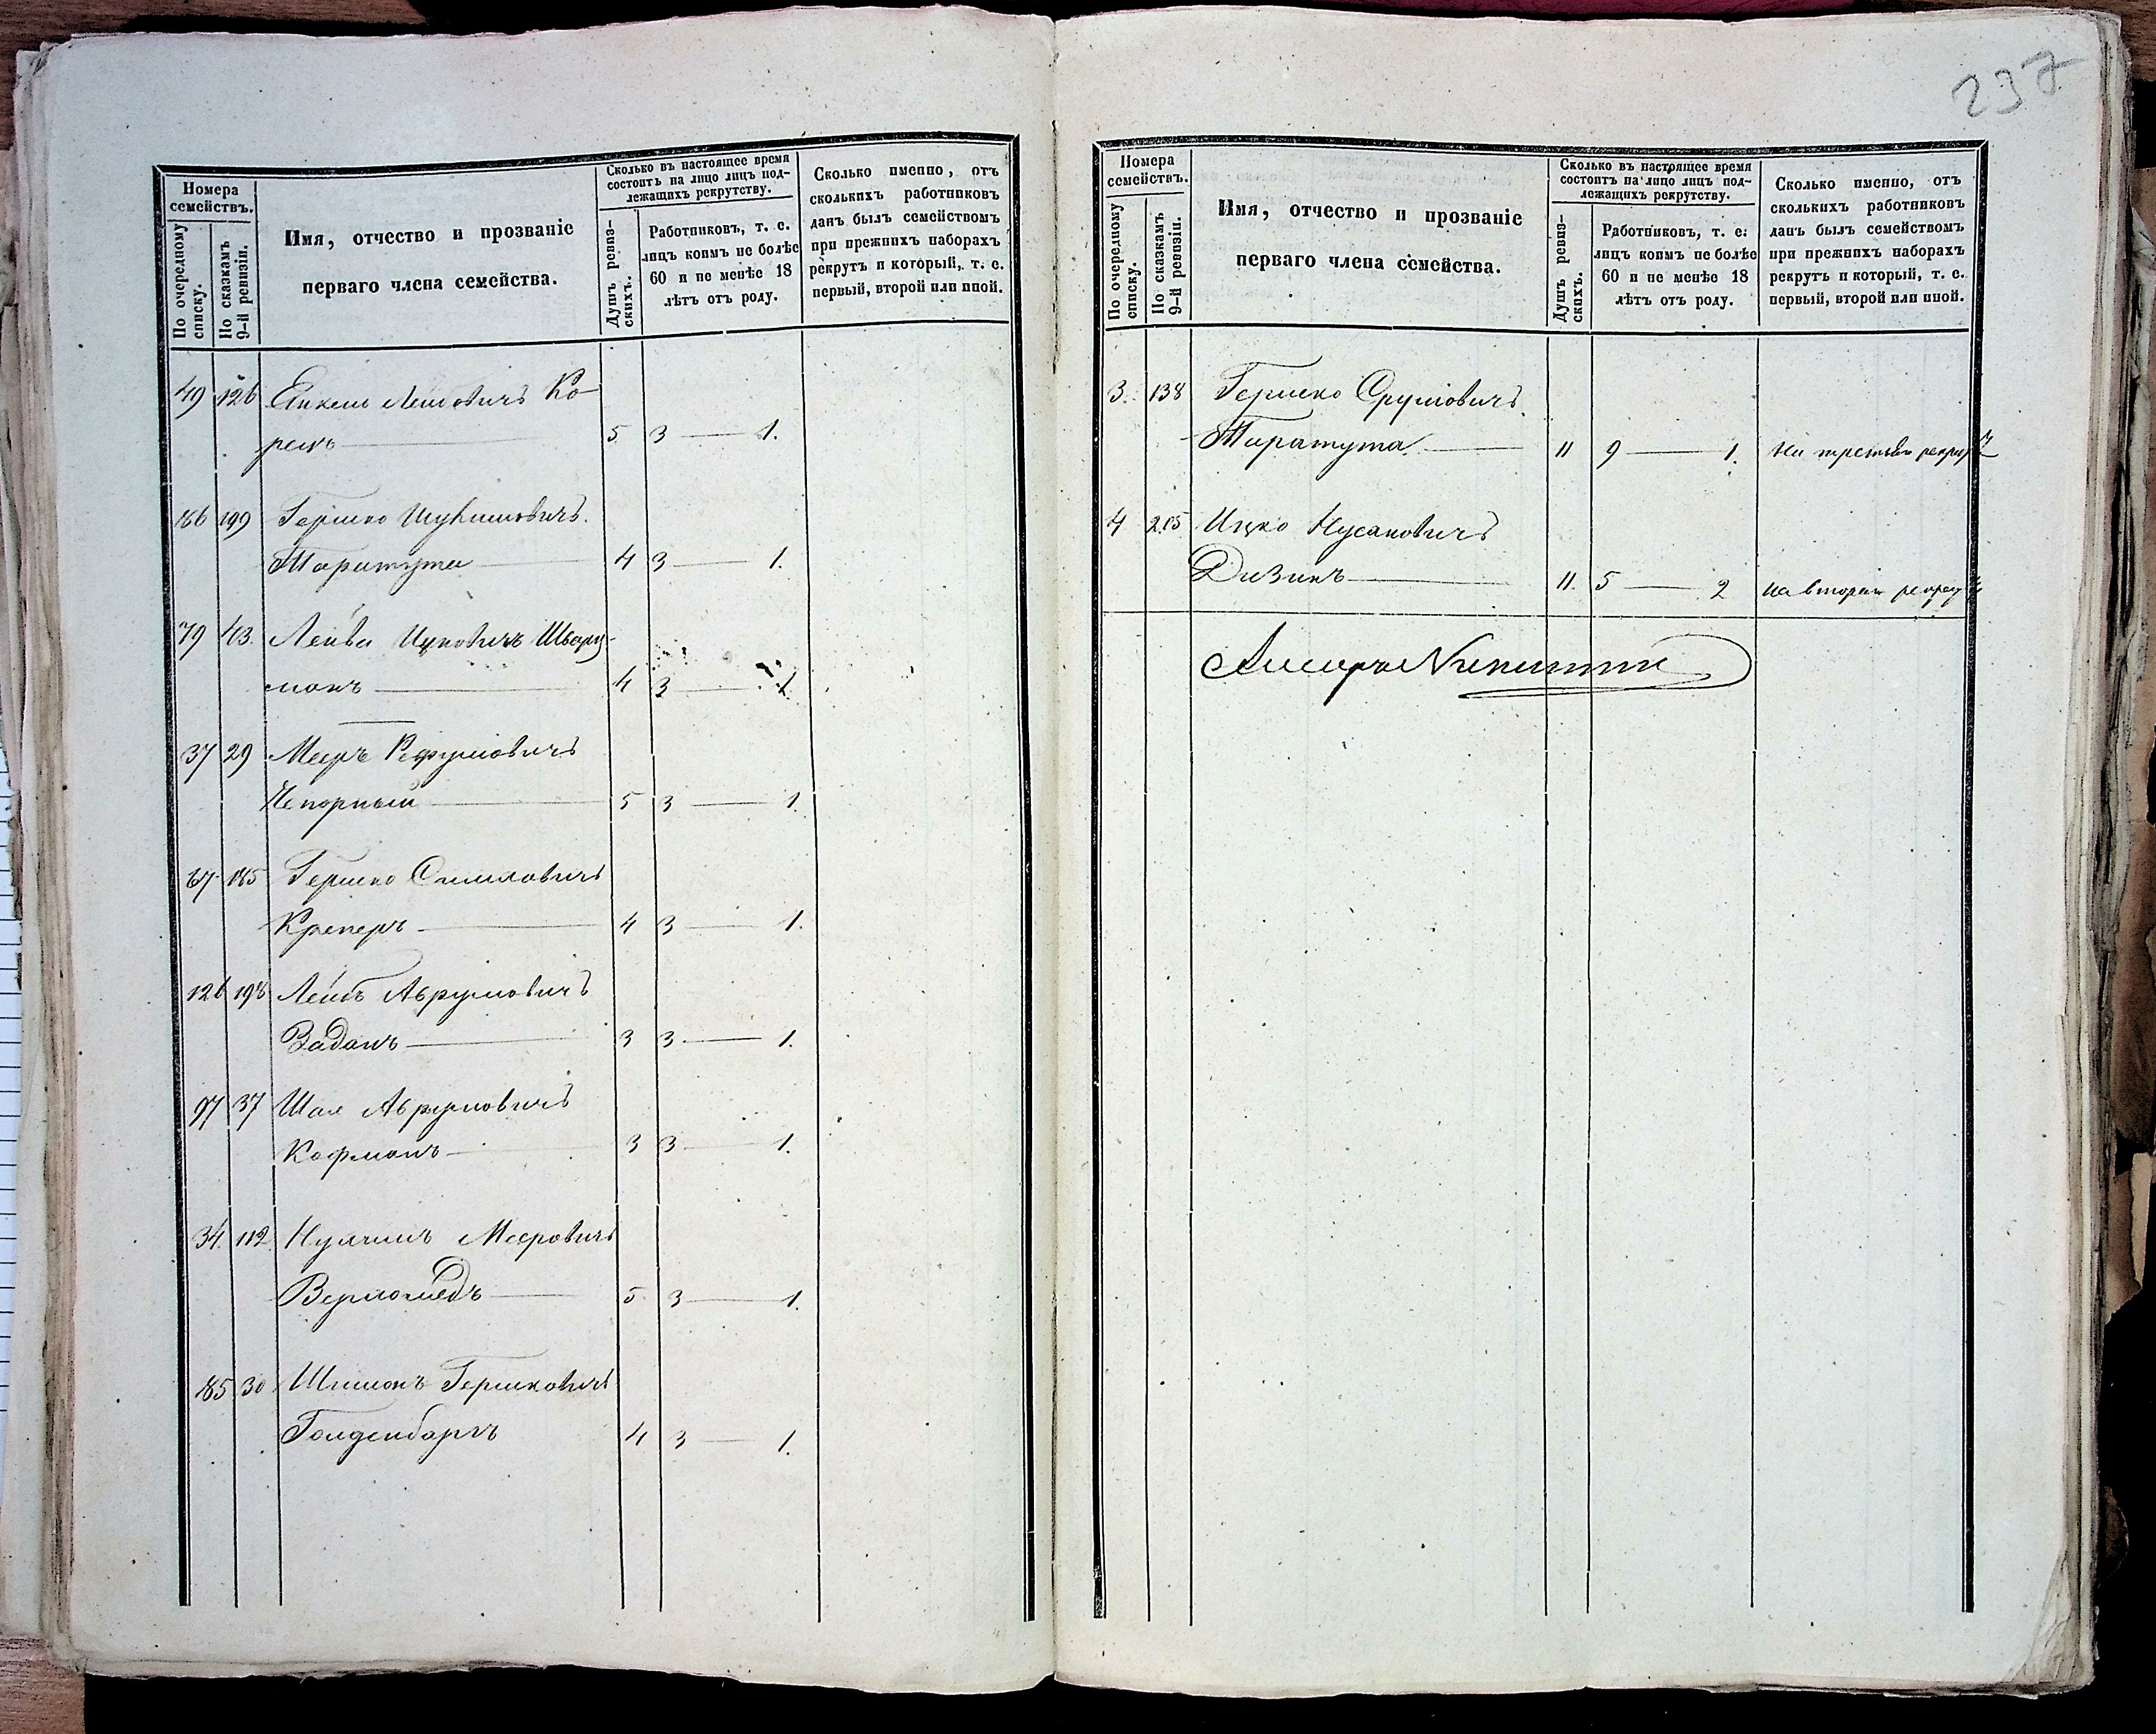 237
Номера семействъ.
По очередному списку.
По сказкамъ 9-й ревизіи.
Имя, отчество и прозваніе
перваго члена семейства.
Сколько въ настоящее время
состоитъ на лицо лицъ под-
лежащихъ рекрутству.
Душъ ревиз-
скихъ.
Работниковъ, т. е.
лицъ коимъ не болѣе
60 и не менѣе 18
лѣтъ отъ роду.
Сколько именно, отъ
сколькихъ работниковъ
данъ былъ семействомъ
при прежнихъ наборахъ
рекрутъ и который, т. е.
первый, второй или иной.
49 126 Янкель Лейбовичъ Ко-
5 3 — 1.
199 Гершко
Таратута 4 3 — 1.
79 43. Лейба Ицковичъ Шварц-
манъ 4 3 — 1
37 29 Мееръ
Чепорный 5 3 — 1.
67 185 Гершко
Креперъ 4 3 — 1.
126 198 Лейбъ Аврумовичъ
Заданъ 3 3 — 1.
97 37 Шая Аврумовичъ
Кофманъ 3 3 — 1.
34. 112. Мееровичъ
5 3 — 1.
185 30 Шимонъ Гершковичъ
Голденбаргъ 4 3 — 1.
Номера
семействъ.
По очередному
списку.
По сказкамъ
9-й ревизіи.
Имя, отчество и прозваніе
перваго члена семейства.
Сколько въ настоящее время
состоитъ на лицо лицъ под-
лежащихъ рекрутству.
Душъ ревиз-
скихъ.
Работниковъ, т. е.
лицъ коимъ не болѣе
60 и не менѣе 18
лѣтъ отъ роду.
Сколько именно, отъ
сколькихъ работниковъ
данъ былъ семействомъ
при прежнихъ наборахъ
рекрутъ и который, т. е.
первый, второй или иной.
3. 138 Гершко Срулювичъ
Таратута 11 9 — 1. На третьемъ рекрут
4 205 Ицко Нусановичъ
Дизикъ 11. 5 — 2 на второмъ рекрут